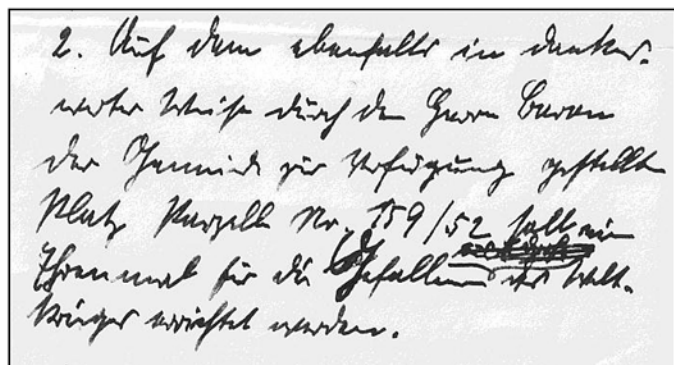 2. Auf dem ebenfalls in dankens-
werter Weise durch den Herrn Baron
der Gemeinde zur Verfügung gestellte
Platz Parzelle Nr. 159/52 soll ein
Ehrenmal für die Gefallenen des Welt-
krieges errichtet werden.